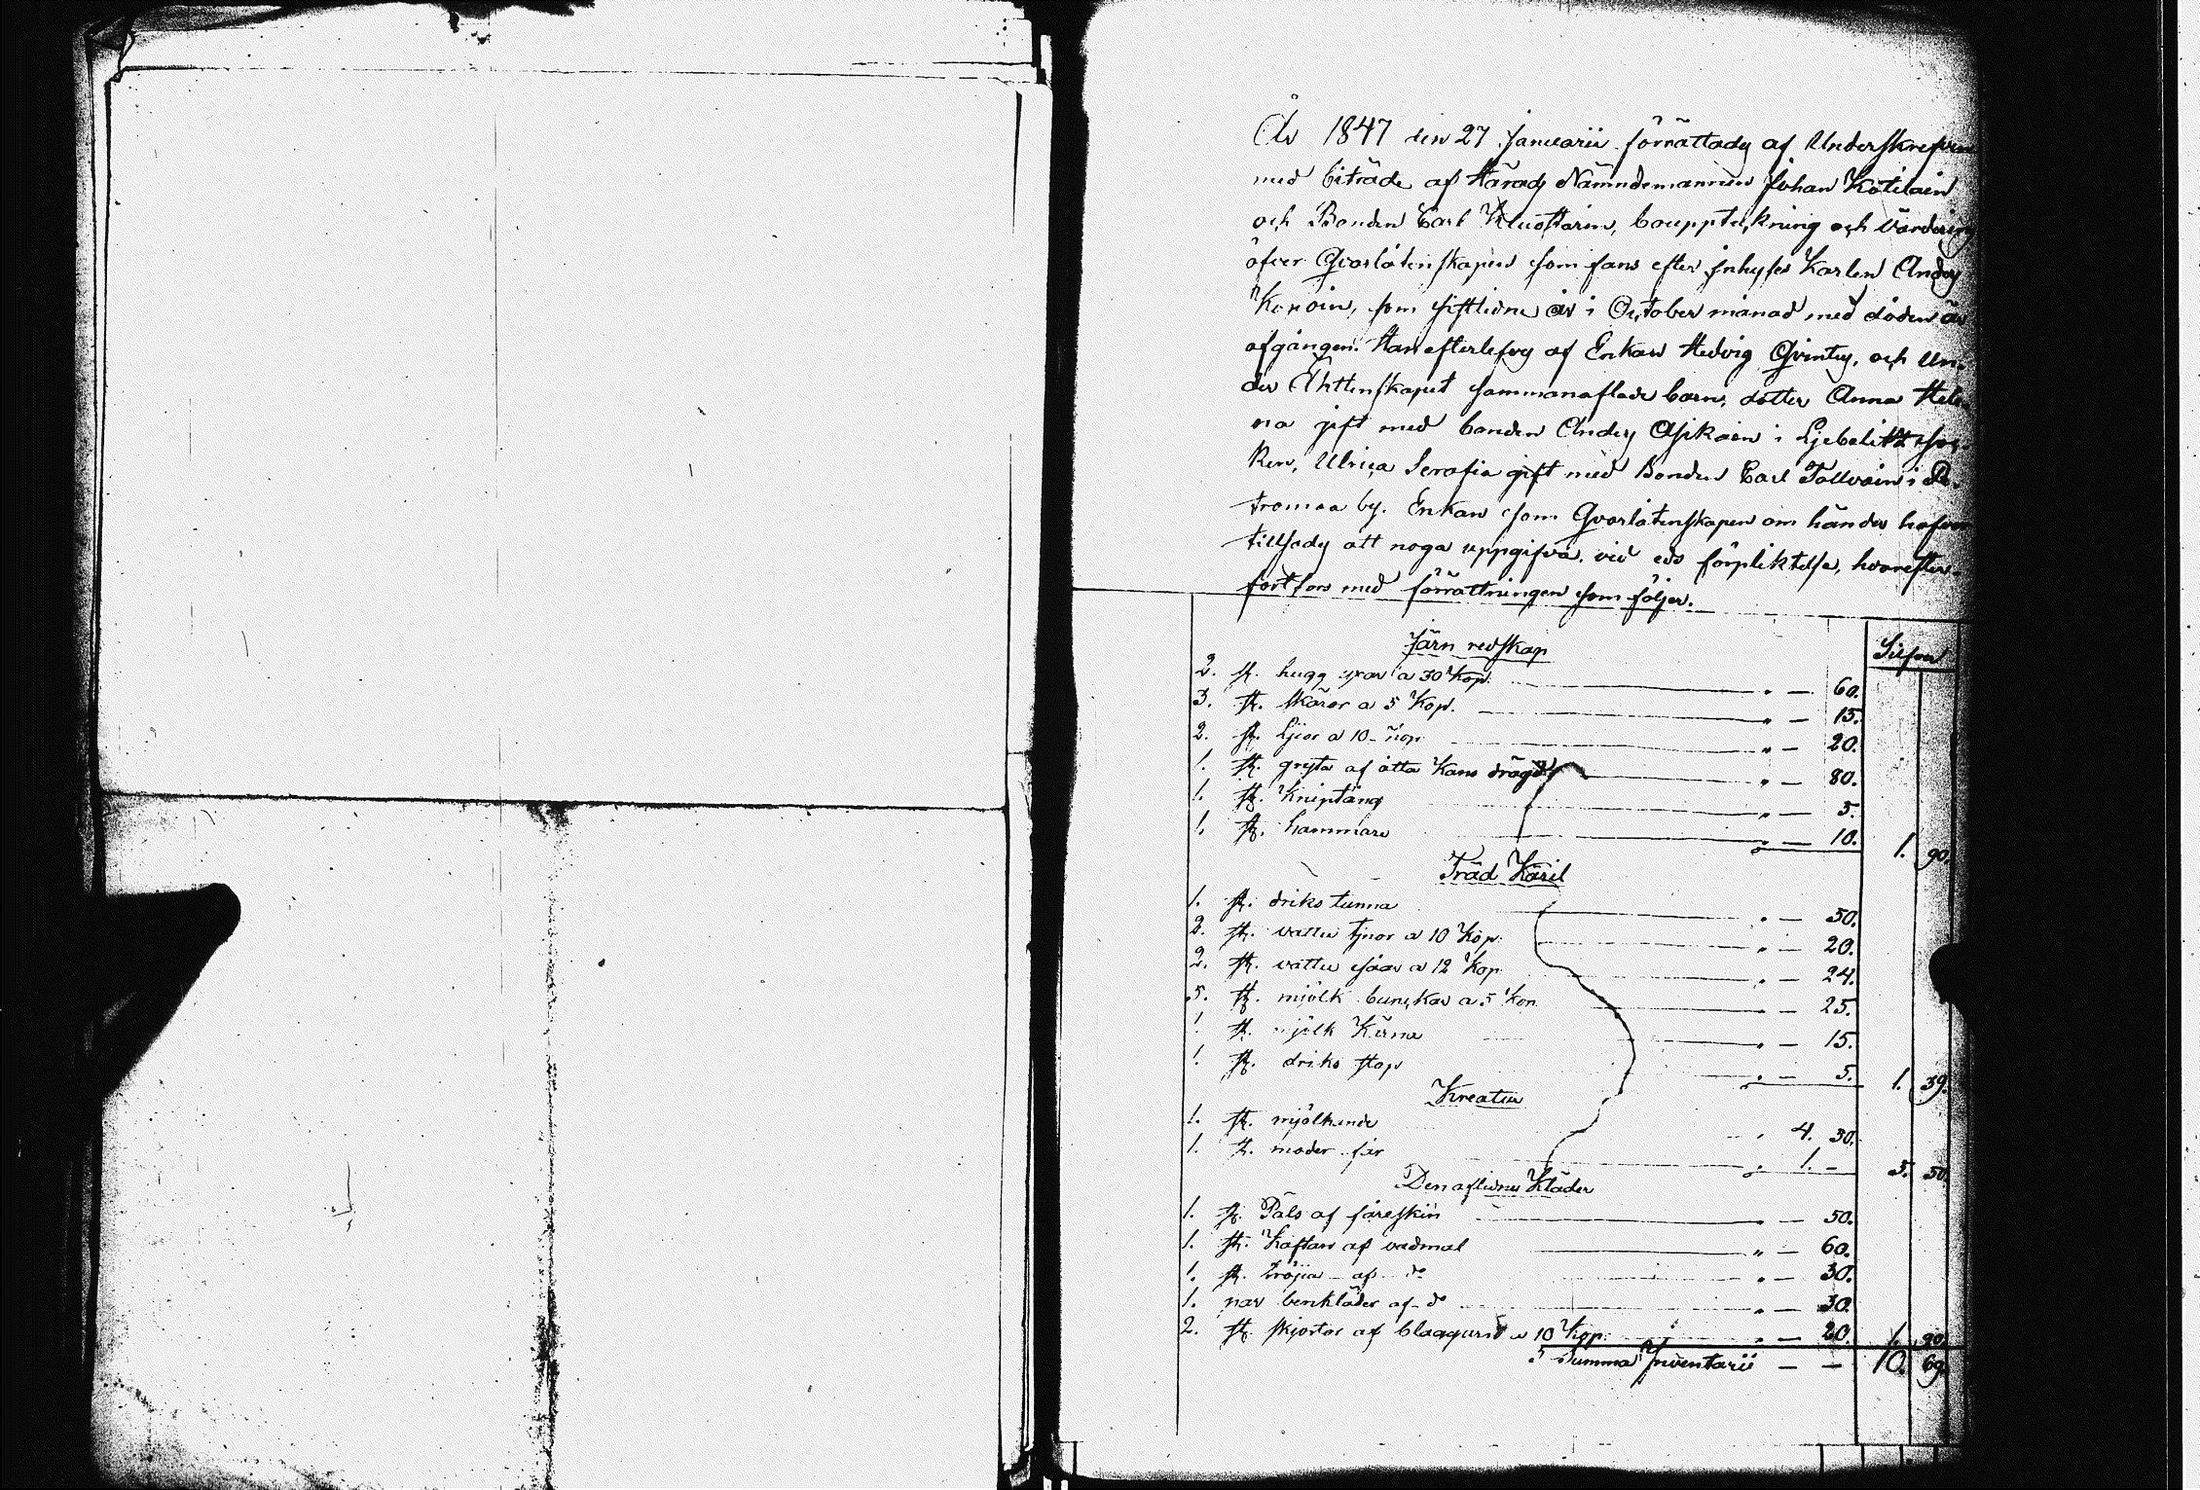 År 1847 den 27 Januarii förrättads af Underskrefven
med biträde af Härads Nämndemannen Johan Kotilain
och Bonden Carl bouppteckning och värdering
öfver Qvarlåtenskapen som fans efter Inhyses Karlen Anders
som sistledne år i October månad med döden är
afgången. Han efterlefves af Enkan Hedvig och un-
der Ähtenskapet sammanaflade barn, dotter Anna Hele-
na gift med bonden Anders Asikain i Libelitz soc-
ken, Ulrica Serafia gift med Bonden Carl Tolvain i
by. Enkan som Qvarlåtenskapen om händer hafver
tillsades att noga uppgifva, vid eds förpliktelse, hvarefter
fortfors med förrättningen som följer.
Järn redskap Silfver
2. st. hugg yxor a 30 Kop. " — 60.
3. st. skäror a 5 Kop. " — 15.
2. st. Ljor a 10 Kop " — 20.
1. st. gryta af åtta Kans drägt " — 80.
1. st. Kniptång " — 5.
1. st. hammare " — 10. 1. 90.
Träd Käril
1. st. driks tunna " — 50.
2. st. vattu a 10 Kop. " — 20.
2. st. vattu såar a 12 Kop " — 24.
5. st. mjölk bunckar a 5 Kop " — 25.
1. st. mjölk Kärna " — 15.
1. st. driks stop " — 5. 1. 39.
Kreatur
1. st. mjölkande " 4. 50.
1. st. moder får " 1. — 5. 50.
Den aflidnes Kläder
1. st. Päls af fåreskin " — 50.
1. st. Kaftan af vadmal " — 60.
1. st. tröjia af do " — 30.
1. par benkläder af do " — 30.
2. st. skjortor af blaggarn a 10 Kop. " — 20. 1. 90.
Summa Inventarii — — 10. 69.